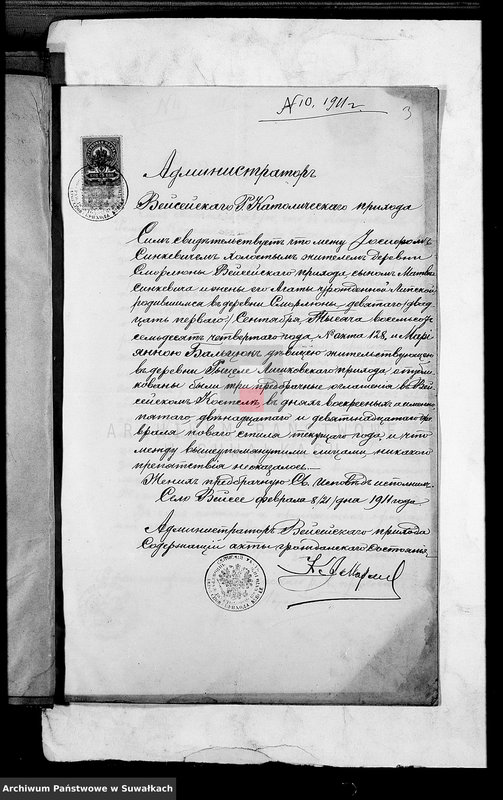 № 10, 1911 г.
3
Администраторъ
Вейсейскаго Р. Католическаго прихода
Симъ свидѣтельствуетъ что между
Синкевичемъ холостымъ жителемъ деревни
Вейсейскаго прихода, сыномъ Матвѣя
Синкевича и жены его Агаты урожденной
родившимся въ деревни девятаго /двад
цать перваго/ Сентября, Тысяча восемьсотъ
семьдесятъ четвертаго года, № акта 128, и Марі
анною дѣвицею жительствующею
въ деревни Лишковскаго прихода, опубли
кованы были три предбрачныя оглашенія въ Вей
сейскомъ Костелѣ въ дняхъ воскресныхъ а именно
пятаго двѣнадцатаго и девятнадцатаго фе
враля новаго стиля текущаго года, и что
между вышеупомянутыми лицами никакого
препятствія не оказалось.
Женихъ предбрачную Св. Исповѣдь исполнилъ.
Село Вейсее февраля 8/21/ дня 1911 года.
Администраторъ Вейсейскаго прихода
Содержащій акты гражданскаго состоянія
Archiwum Państwowe w Suwałkach